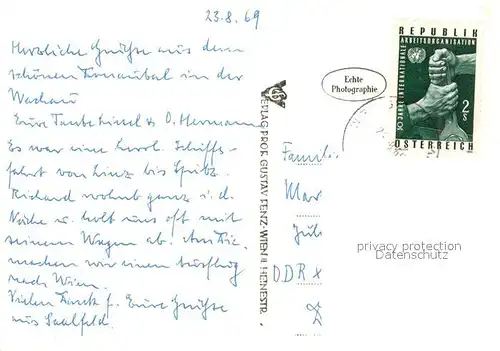 23.8.69
Herzliche Grüße aus dem
schönen Donautal in der
Wachau
Eure Tante Liesel & O. Hermann
Es war eine herrl. Schiffs-
fahrt von Linz bis Spitz.
Richard wohnt ganz i. d.
Nähe u. holt uns oft mit
seinem Wagen ab. Am Die.
machen wir einen Ausflug
nach Wien.
Vielen Dank f. Eure Grüße
aus Saalfeld.
VERLAG PROF. GUSTAV FENZ-WIEN II. HEINESTR.
Echte
Photographie
REPUBLIK
50 JAHRE INTERNATIONALE
ARBEITSORGANISATION
2
S
ÖSTERREICH
Famili
Mar
DDR
privacy protection
Datenschutz